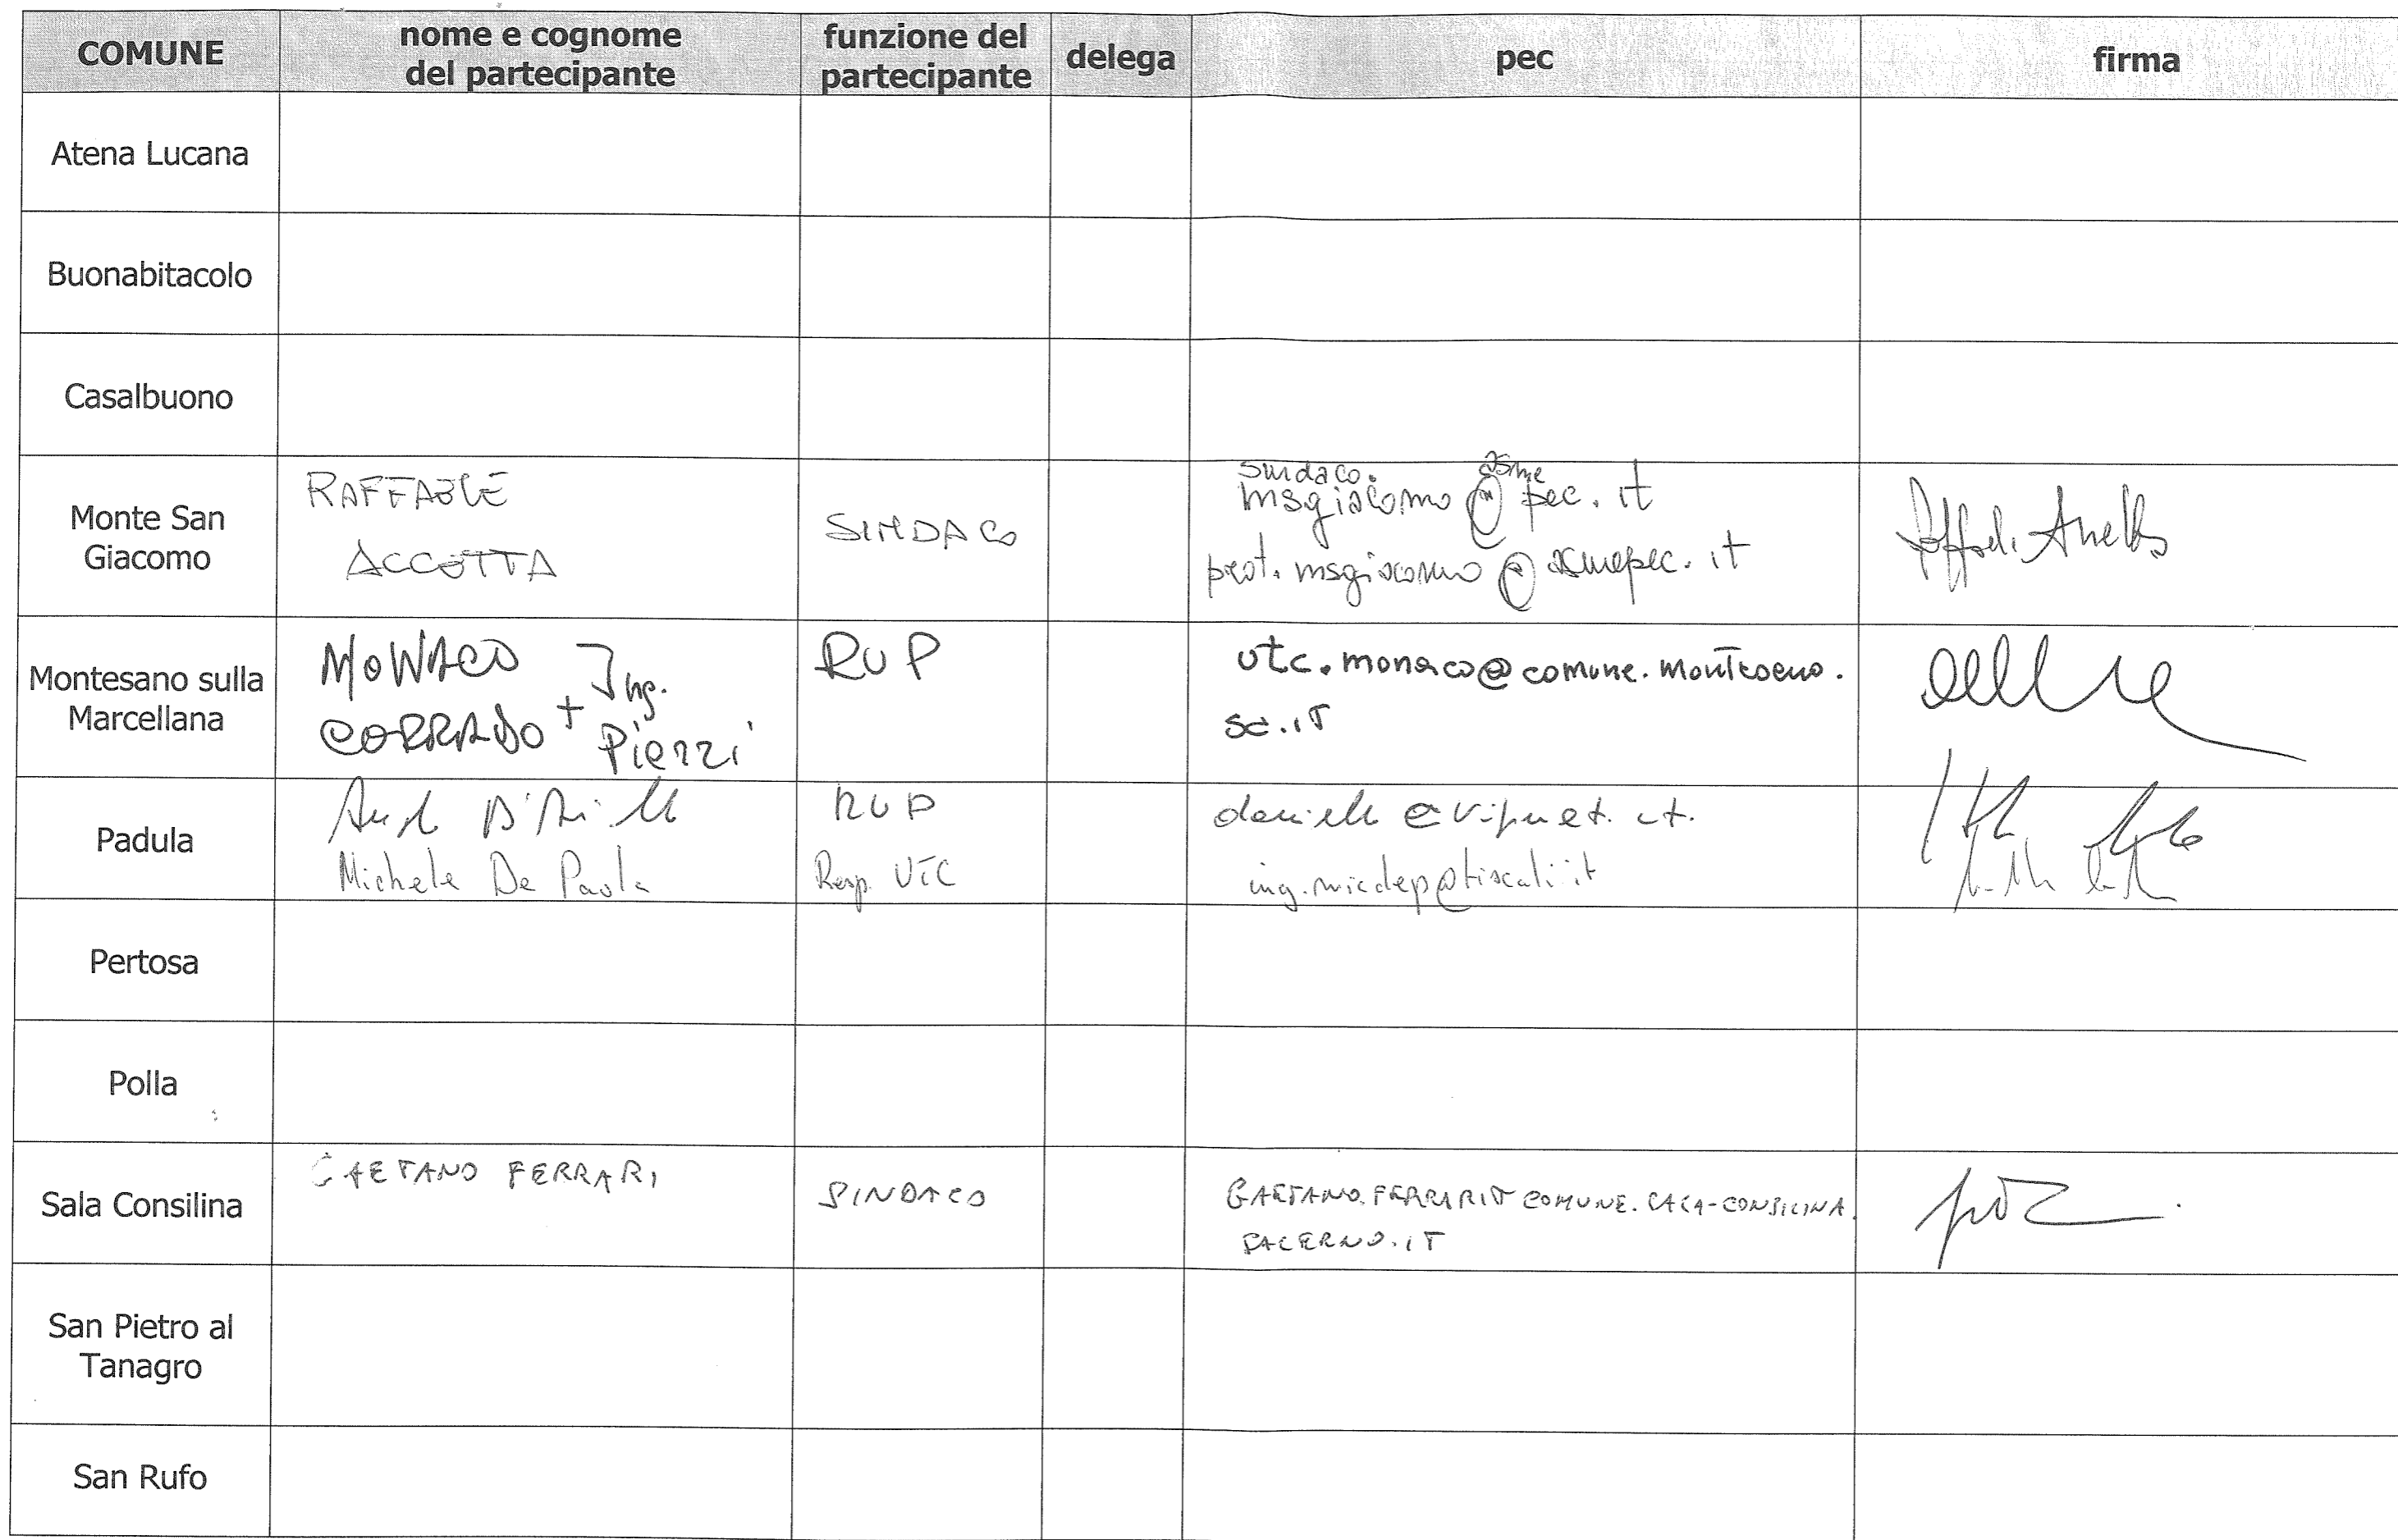 COMUNE
nome e cognome
del partecipante
funzione del
partecipante
delega
pec
firma
Atena Lucana
Buonabitacolo
Casalbuono
Monte San
Giacomo
RAFFAELE
ACCETTA
SINDACO
sindaco.
asme
msgiacomo@pec.it
prot.msgiacomo@asmepec.it
Montesano sulla
Marcellana
MONACO Ing.
CORRADO + Pierri
RUP
utc.monaco@comune.montesano.
sa.it
Padula
RUP
Michele De Paola
Resp. UTC
ing.micdep@tiscali.it
Pertosa
Polla
Sala Consilina
GAETANO FERRARI
SINDACO
GAETANO.FERRARI@COMUNE.SALA-CONSILINA.
SALERNO.IT
San Pietro al
Tanagro
San Rufo